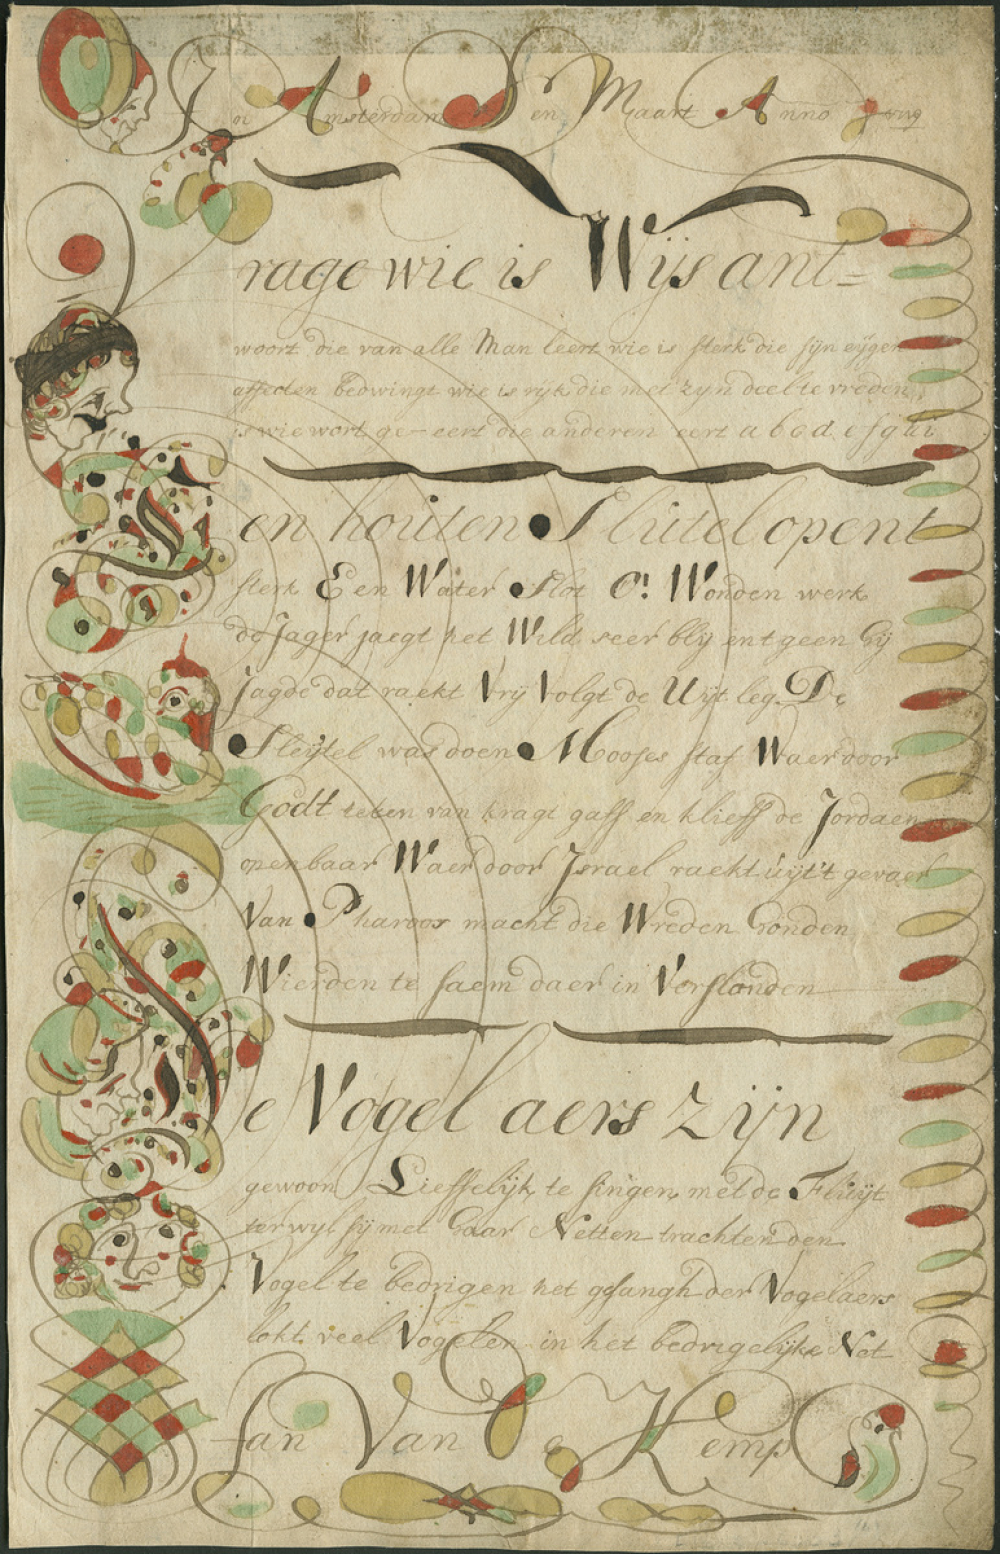 Amsterdam Den Maart Anno
Vrage wie is Wijs ant=
woort die van alle Man leert wie is sterk die sijn eijgen
affecten bedwingt wie is ryk die met zyn deel te vreden
is wie wort ge-eert die anderen eert a b c d e f g h i
Een houten Slutel opent
sterk Een Water Slot O! Wonden werk
de Jager jaegt het Wild seer blij entgeen Hij
Jagde dat raekt Vrij Volgt de Uijt leg. De
Sleutel was doen Mooses staf Waer door
Godt teken van kragt gaff en klieff de Jordaen
openbaar Waer door Israel raekt uijt't gevaer
Van Pharoos macht die Wreden Honden
Wierden te saem daer in Verslonden
De Vogelaers zijn
gewoon Lieffelijk te singen met de Fluijt
terwyl sij met Haar Netten trachten den
Vogel te bedrigen het gesangh der Vogelaers
lokt veel Vogelen in het bedrigelijke Net
Jan Van De Kemp